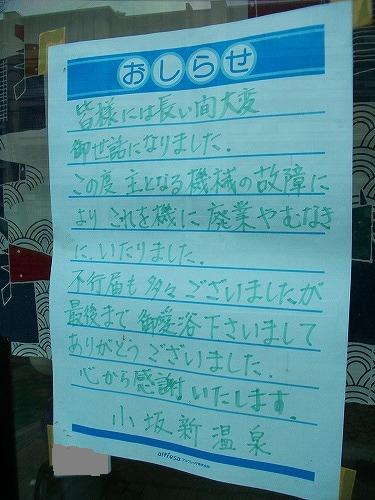 おしらせ
皆様には長い間大変
御世話になりました.
この度主となる機械の故障に
より これを機に廃業やむなき
に、いたりました.
不行届も多々ございましたが
最後まで御愛浴下さいまして
ありがとうございました.
心から感謝いたします.
小坂新温泉
altfresa アルフレッサ株式会社